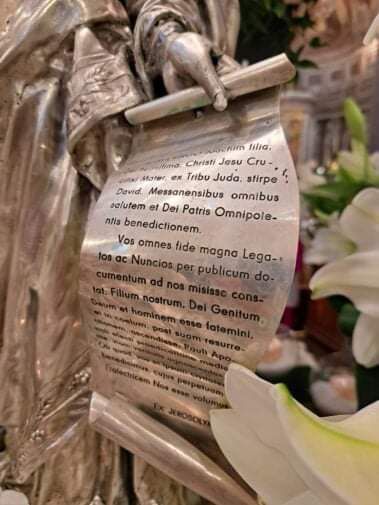 Joachim filia,
Christi Jesu Cru-
Mater, ex Tribu Juda, stirpe
David. Messanensibus omnibus
salutem et Dei Patris Omnipote-
ntis benedictionem.
Vos omnes fide magna Lega-
tos ac Nuncios per publicum do-
cumentum ad nos misisse cons-
tat. Filium nostrum, Dei Genitum
Deum et hominem esse fatemini,
et in coelum, post suam resurre-
ctionem, ascendisse: Pauli Apo-
benedicimus, cujus perpetuam
Protectricem Nos esse volumus
Ex JEROSOLYM